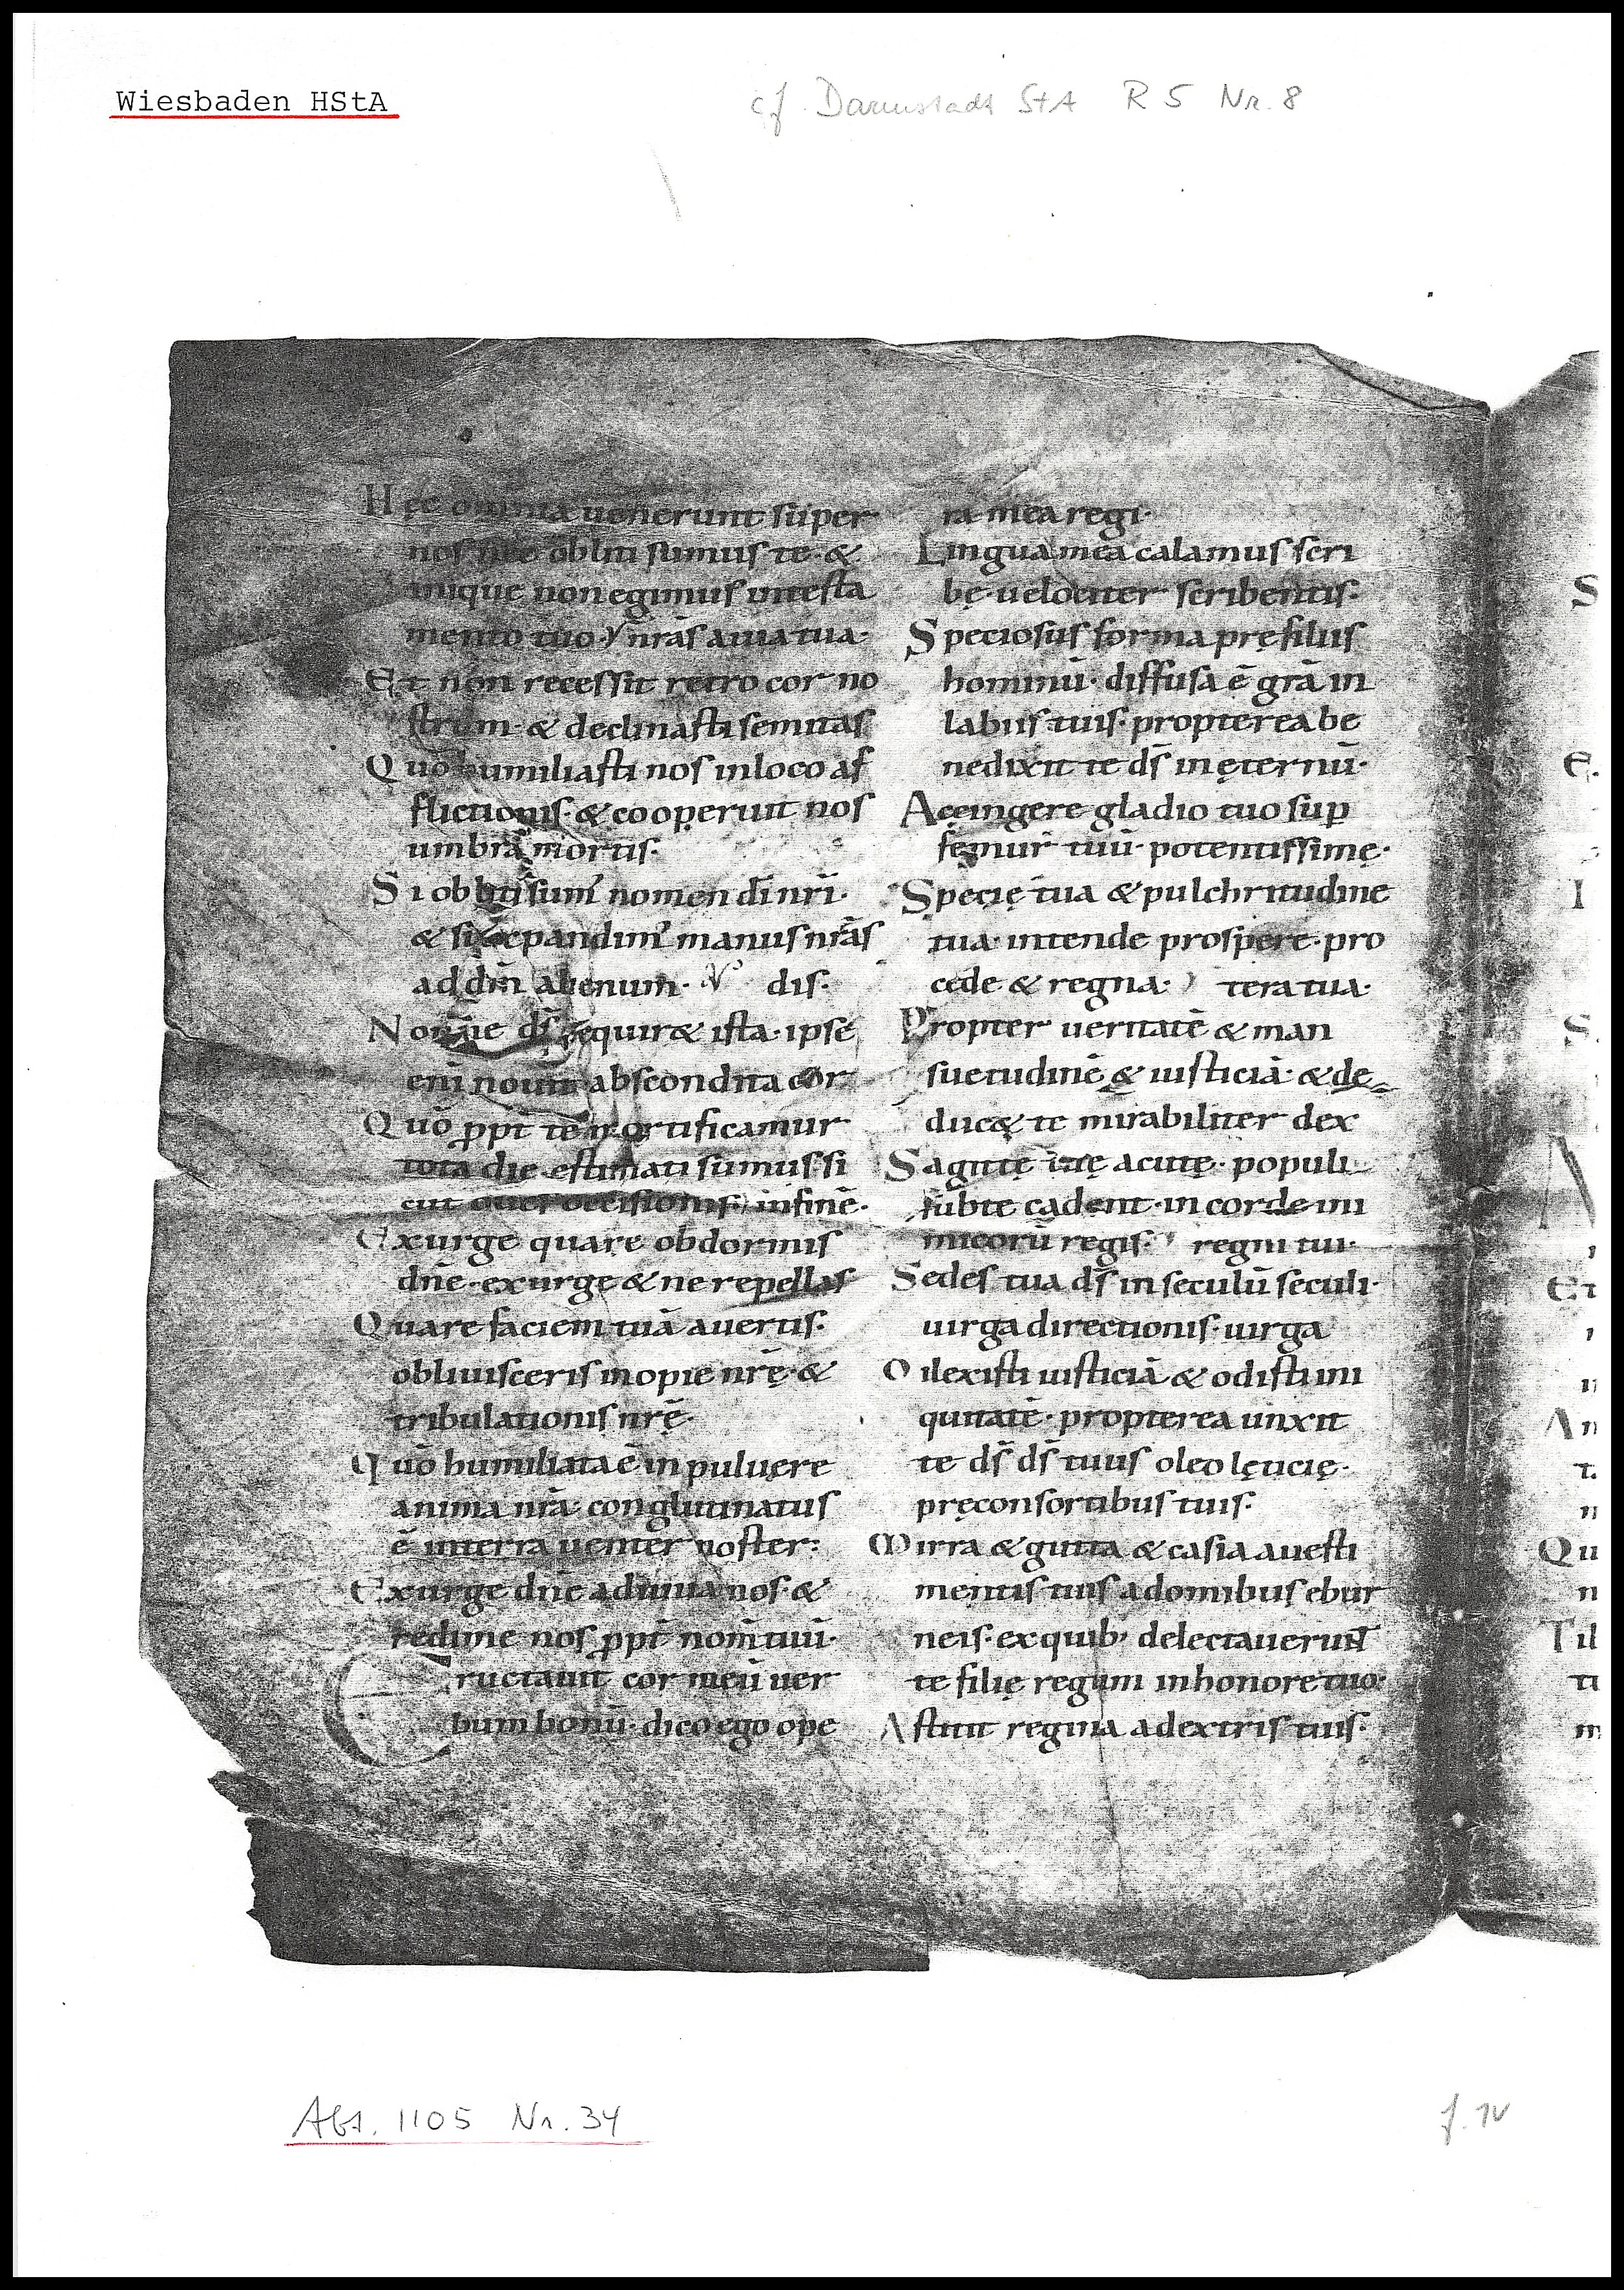 Wiesbaden HStA
cf. Darmstadt StA R 5 Nr. 8
Hęc omnia uenerunt super
nos nec obliti sumus te· &
inique non egimus intesta
mento tuo· nr̄as a uia tua·
Et non recessit retro cor no
strum· & declinasti semitas
Quō humiliasti nos in loco af
flictionis· & cooperuit nos
umbra mortis·
Si obliti sum' nomen dī nrī·
& si expandim' manus nr̄as
ad dm̄ alienum· dis·
Nonne ds̄ requir& ista· ipse
eni nouit abscondita cor
Quō ꝓpt̄ te mortificamur
tota die· estimati sumus· si
cut oues occisionis· infinē·
Exurge quare obdormis
dn̄e· exurge & ne repellas
Quare faciem tuā auertis·
obliuisceris inopie nr̄ę· &
tribulationis nr̄ę·
Quō humiliata ē in puluere
anima nr̄a· conglutinatus
ē in terra uenter noster·
Exurge dn̄e adiuua nos· &
redime nos ꝓpt̄ nom̄ tuū·
Eructauit cor meū uer
bum bonū· dico ego ope
ra mea regi·
Lingua mea calamus scri
bę· uelociter scribentis·
Speciosus forma prę filiis
hominū· diffusa ē grā in
labiis tuis· propterea be
nedixit te ds̄ in ęternū·
Accingere gladio tuo sup̄
femur tuū· potentissimę·
Specię tua & pulchritudine
tua· intende prospere· pro
cede & regna· tera tua·
Propter ueritatē & man
suetudinē & iusticiā· & de
duc& te mirabiliter dex
Sagittę tuę acutę· populi
sub te cadent· in corde ini
micorū regis· regni tui·
Sedes tua ds̄ in seculū seculi·
uirga directionis· uirga
Dilexisti iusticiā & odisti ini
quitatē· propterea unxit
te ds̄ ds̄ tuus oleo lęticię·
prę consortibus tuis·
Mirra & gutta & casia a uesti
mentis tuis a domibus ebur
neis· ex quib' delectauerunt
te filię regum in honore tuo·
Astitit regina a dextris tuis·
S
E·
I
S
Et
An
Qu
Til
Abt. 1105 Nr. 34
f. 1v